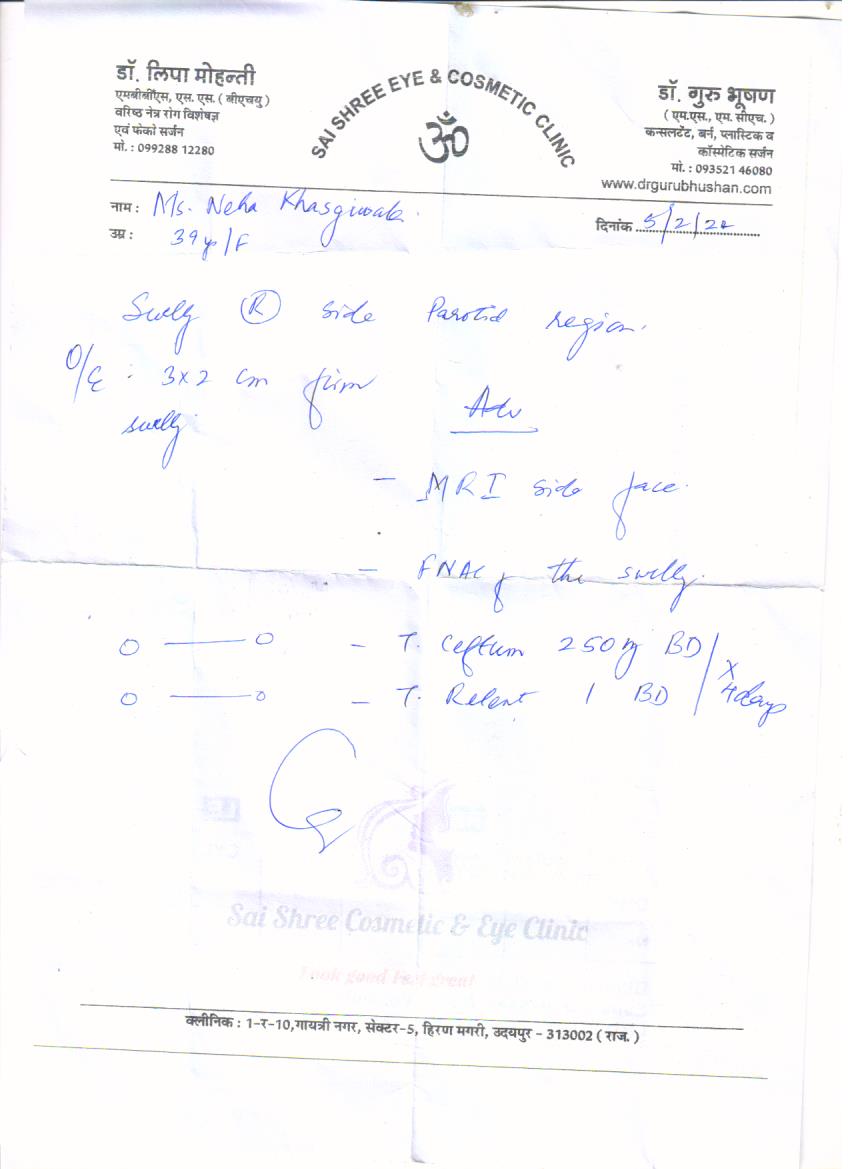 डॉ. लिपा मोहन्ती
एमबीबीएस, एस. एस. ( बीएचयु )
वरिष्ठ नेत्र रोग विशेषज्ञ
एवं फेको सर्जन
मो. : 099288 12280
SAI SHREE EYE & COSMETIC CLINIC
ॐ
डॉ. गुरु भूषण
( एम.एस., एम. सीएच. )
कन्सलटेंट, बर्न, प्लास्टिक व
कॉस्मेटिक सर्जन
मो. : 093521 46080
www.drgurubhushan.com
नाम : Ms. Neha Khasgiwale
दिनांक 5/2/24
उम्र : 39 /F
Swelly R side Parotid region.
O/E : 3x2 cm firm
swelly
Adv
- MRI side face.
- FNAC of the swelly.
O — O - T. Ceftum 250 mg BD
O — O - T. Relent 1 BD
x 4 days
Sai Shree Cosmetic & Eye Clinic
Look good Feel great
क्लीनिक : 1-र-10, गायत्री नगर, सेक्टर-5, हिरण मगरी, उदयपुर - 313002 ( राज. )